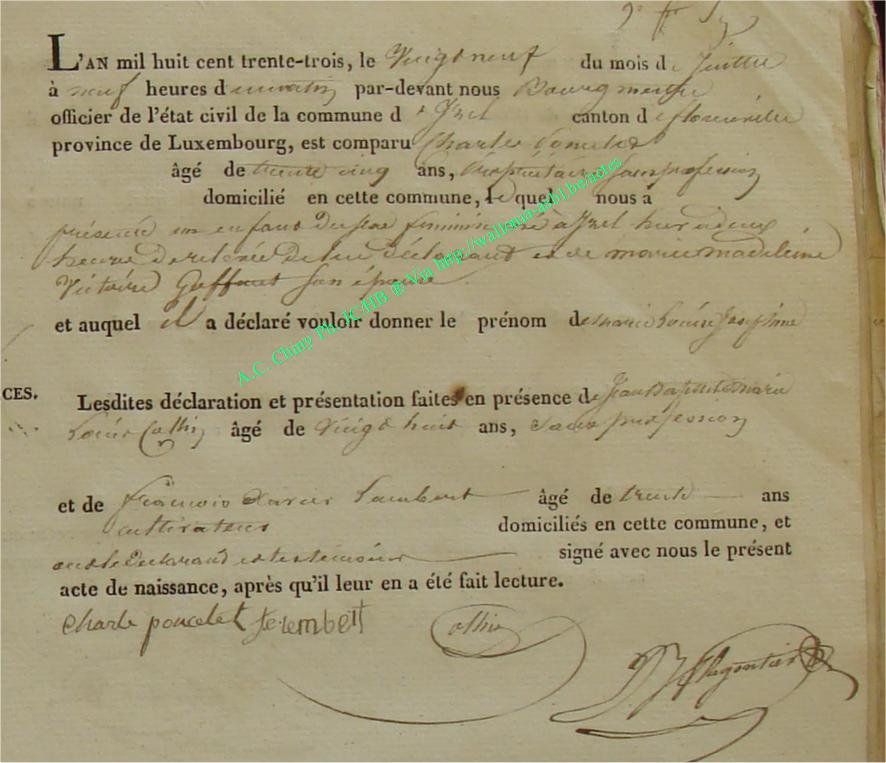 L'AN mil huit cent trente-trois, le Vingt neuf du mois de Juillet
à neuf heures du matin par-devant nous Bourgmestre
officier de l'état civil de la commune d'Izel canton de florenville
province de Luxembourg, est comparu Charles Poncelet
âgé de trente cinq ans, propriétaire sans profession
domicilié en cette commune, lequel nous a
présenté un enfant du sexe féminin né à Izel hier à deux
heures de relevée de lui déclarant et de marie madeleine
Victoire Goffinet son épouse
et auquel il a déclaré vouloir donner le prénom de marie Louise Joséphine
CES. Lesdites déclaration et présentation faites en présence de Jean Baptiste marie
Louis Collin âgé de Vingt huit ans, Sans profession
et de François Xavier Lambert âgé de trente ans
cultivateur domiciliés en cette commune, et
ont le Déclarant et les témoins signé avec nous le présent
acte de naissance, après qu'il leur en a été fait lecture.
charle poncelet
A.C. Chiny Ph. JC/HB ® Via http://wallonia-asbl.be/actes